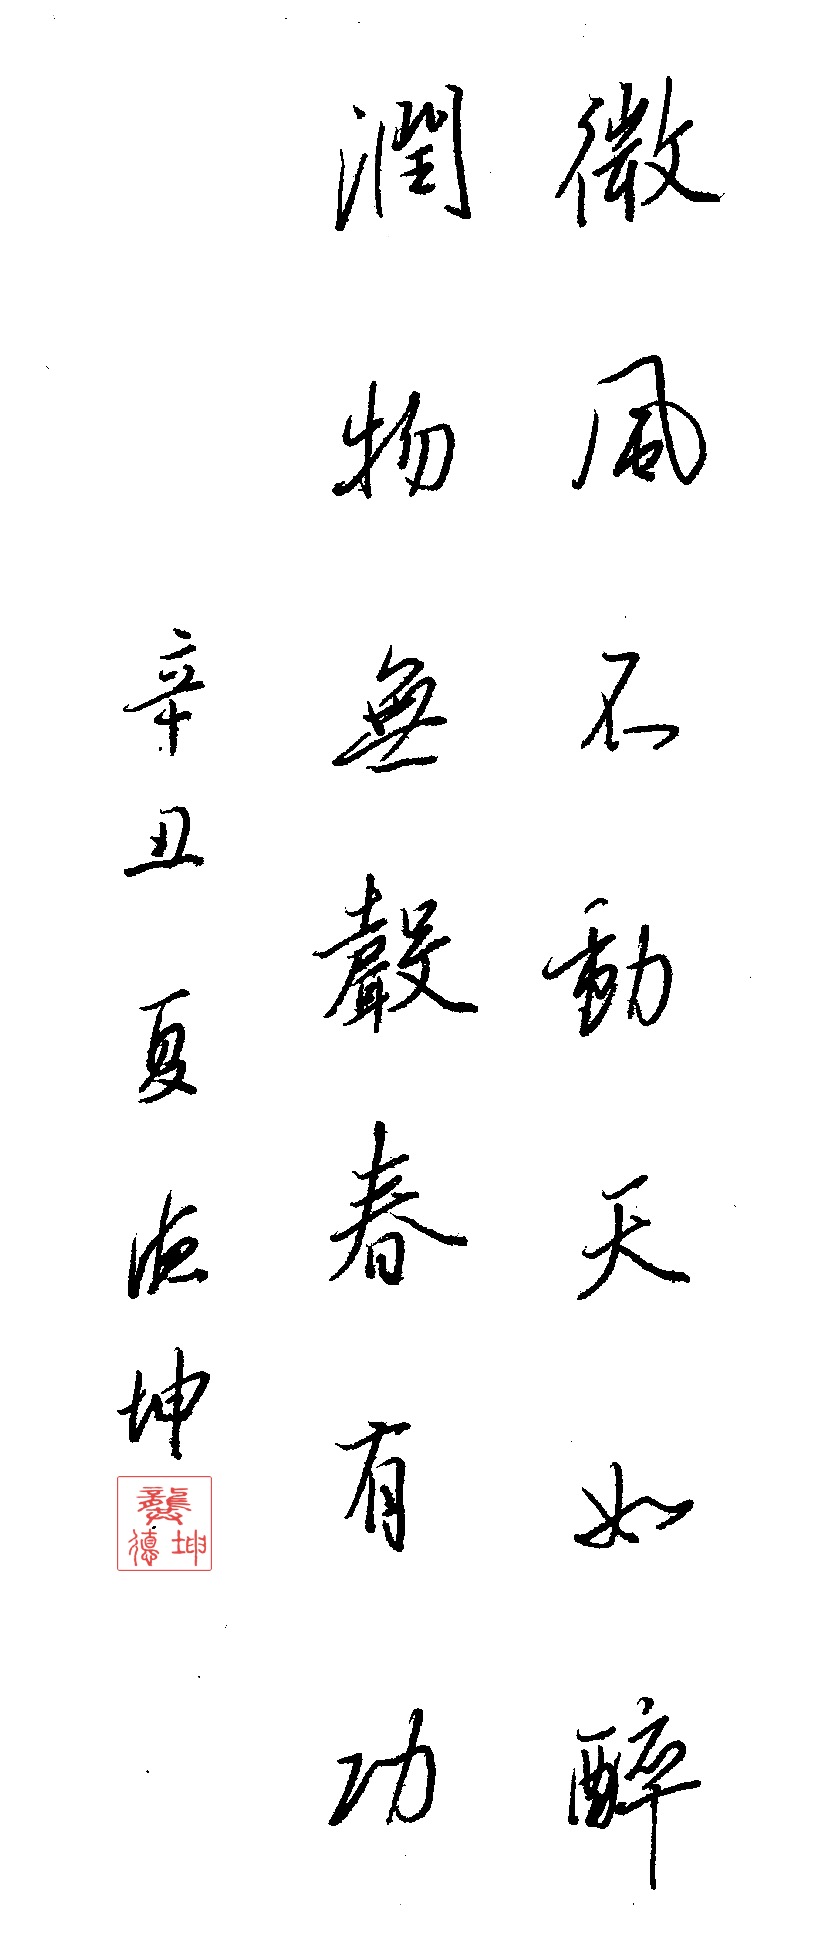 微風不動天如醉
潤物無聲春有功
辛丑夏德坤
龔德坤